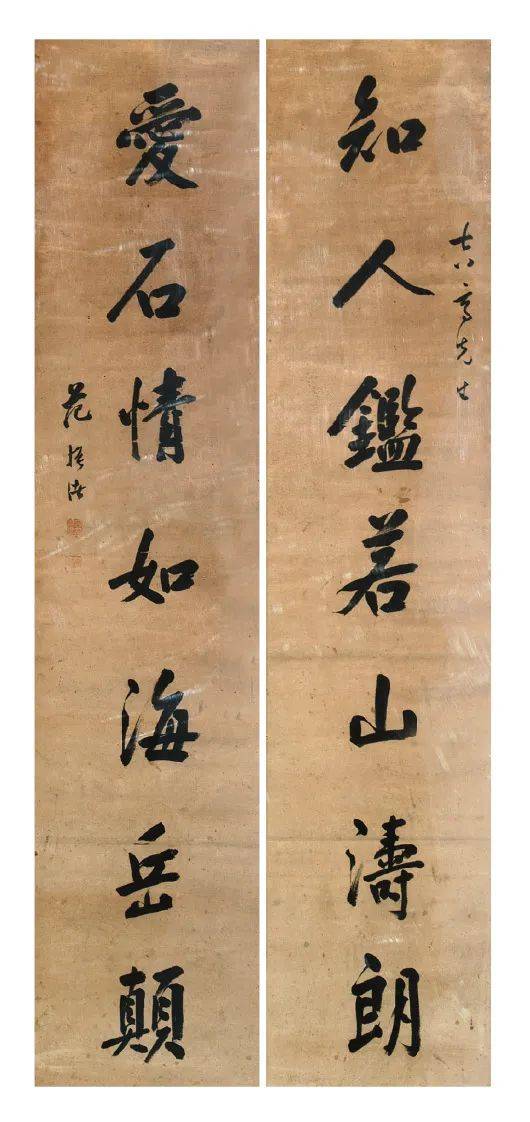 知人鑑若山濤朗
先生
愛石情如海岳顛
范振緒